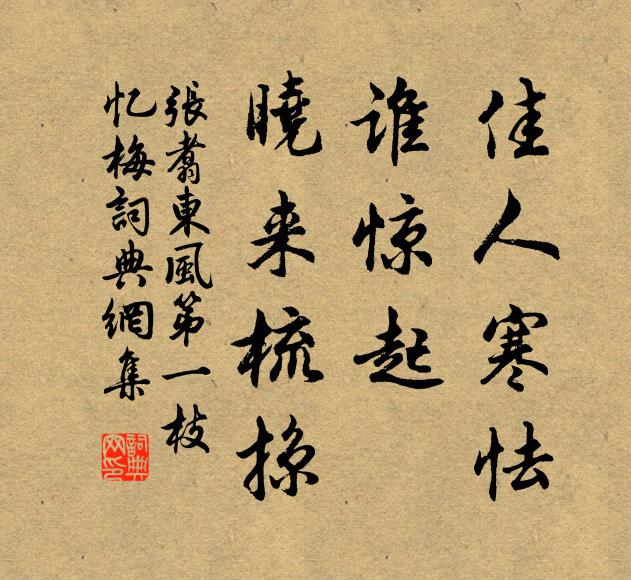 佳人寒怯
谁惊起
曉来梳掠
張翥東風第一枝
忆梅詞典網集
詞典
网印